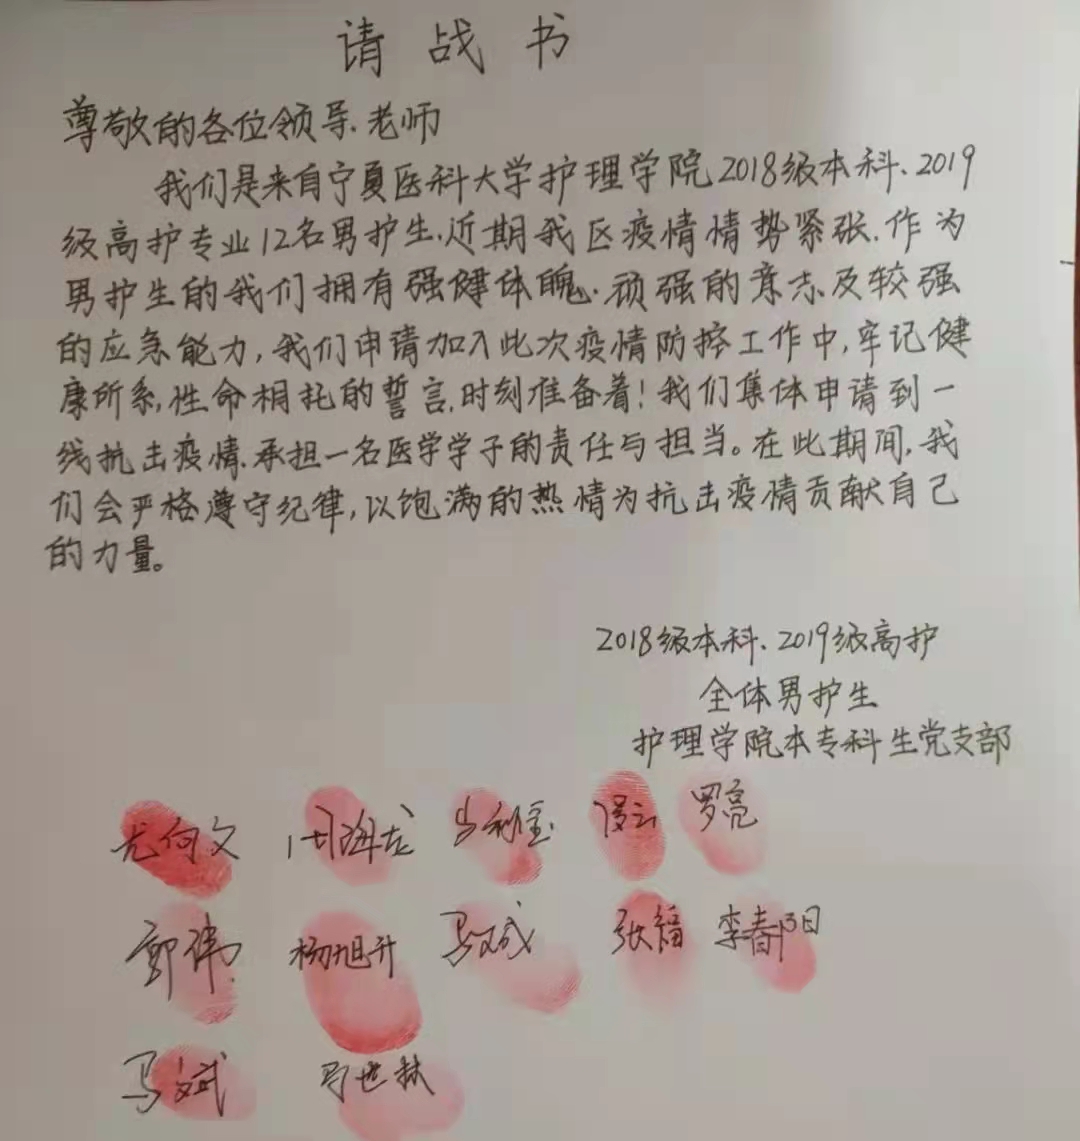 请战书
尊敬的各位领导、老师
我们是来自宁夏医科大学护理学院2018级本科、2019
级高护专业12名男护生,近期我区疫情情势紧张,作为
男护生的我们拥有强健体魄、顽强的意志及较强
的应急能力,我们申请加入此次疫情防控工作中,牢记健
康所系,性命相托的誓言,时刻准备着!我们集体申请到一
线抗击疫情,承担一名医学学子的责任与担当。在此期间,我
们会严格遵守纪律,以饱满的热情为抗击疫情贡献自己
的力量。
2018级本科、2019级高护
全体男护生
护理学院本专科生党支部
尤向文 周海龙 罗亮
郭伟 杨旭升 马文成 张福 李春阳
马斌 马世林